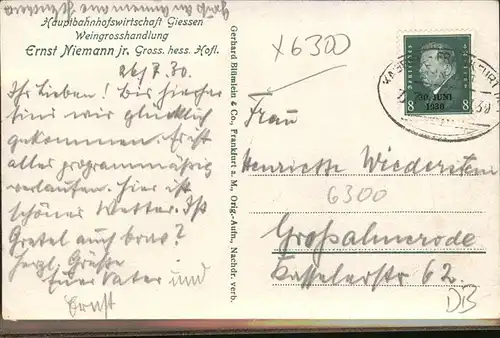 Hauptbahnhofswirtschaft Giessen
Weingrosshandlung
Ernst Niemann jr. Gross. hess. Hofl.
26/7.30.
Ihr Lieben! Bis hierher
sind wir glücklich
gekommen. Es ist
alles programmäßig
verlaufen. Hier ist
schönes Wetter. Ist
Gretel auch brav?
Herzl. Grüße
Euer Vater und
Ernst
Gerhard Blümlein & Co., Frankfurt a. M., Orig.-Aufn., Nachdr. verb.
x6300
Deutsches Reich
30. JUNI
1930
8 8
Frau
Henriette Wiederstein
6300
Großalmerode
Kasselerstr 62.
DB